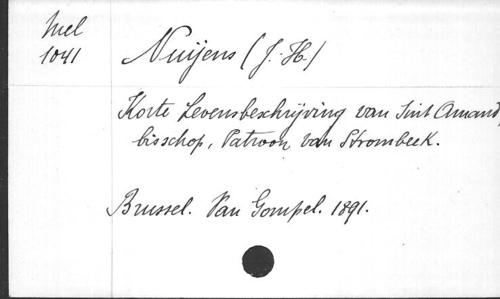 Mel
1041
Nuijens (J. H.)
Korte Levensbeschrijving van Sint Amand,
bisschop, Patroon van Strombeek.
Brussel. Van Gompel. 1891.